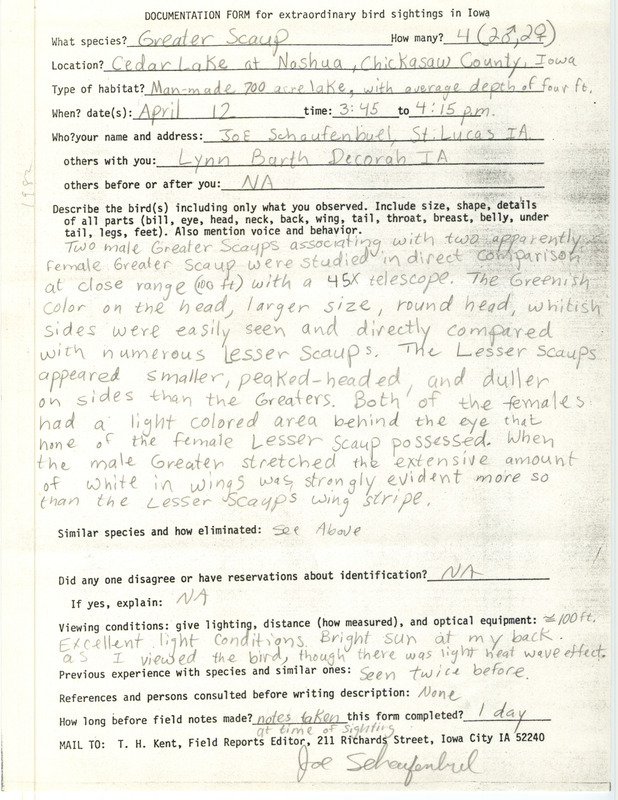 DOCUMENTATION FORM for extraordinary bird sightings in Iowa
What species? Greater Scaup How many? 4 (2♂,2♀)
Location? Cedar Lake at Nashua, Chickasaw County, Iowa
Type of habitat? Man-made 700 acre lake, with average depth of four ft.
When? date(s): April 12 time: 3:45 to 4:15 p.m.
Who?your name and address: Joe Schaufenbuel, St. Lucas IA.
others with you: Lynn Barth Decorah IA
others before or after you: NA
1982
Describe the bird(s) including only what you observed. Include size, shape, details
of all parts (bill, eye, head, neck, back, wing, tail, throat, breast, belly, under
tail, legs, feet). Also mention voice and behavior.
Two male Greater Scaups associating with two apparently
female Greater Scaup were studied in direct comparison
at close range (100 ft) with a 45X telescope. The Greenish
color on the head, larger size, round head, whitish
sides were easily seen and directly compared
with numerous Lesser Scaups. The Lesser Scaups
appeared smaller, peaked-headed, and duller
on sides than the Greaters. Both of the females
had a light colored area behind the eye that
none of the female Lesser Scaup possessed. When
the male Greater stretched the extensive amount
of white in wings was strongly evident more so
than the Lesser Scaups wing stripe.
Similar species and how eliminated: See Above
Did any one disagree or have reservations about identification? NA
If yes, explain: NA
Viewing conditions: give lighting, distance (how measured), and optical equipment: ≈100 ft.
Excellent light conditions. Bright sun at my back.
as I viewed the bird, though there was light heat wave effect.
Previous experience with species and similar ones: Seen twice before.
References and persons consulted before writing description: None
How long before field notes made? notes taken this form completed? 1 day
at time of sighting
MAIL TO: T. H. Kent, Field Reports Editor, 211 Richards Street, Iowa City IA 52240
Joe Schaufenbuel